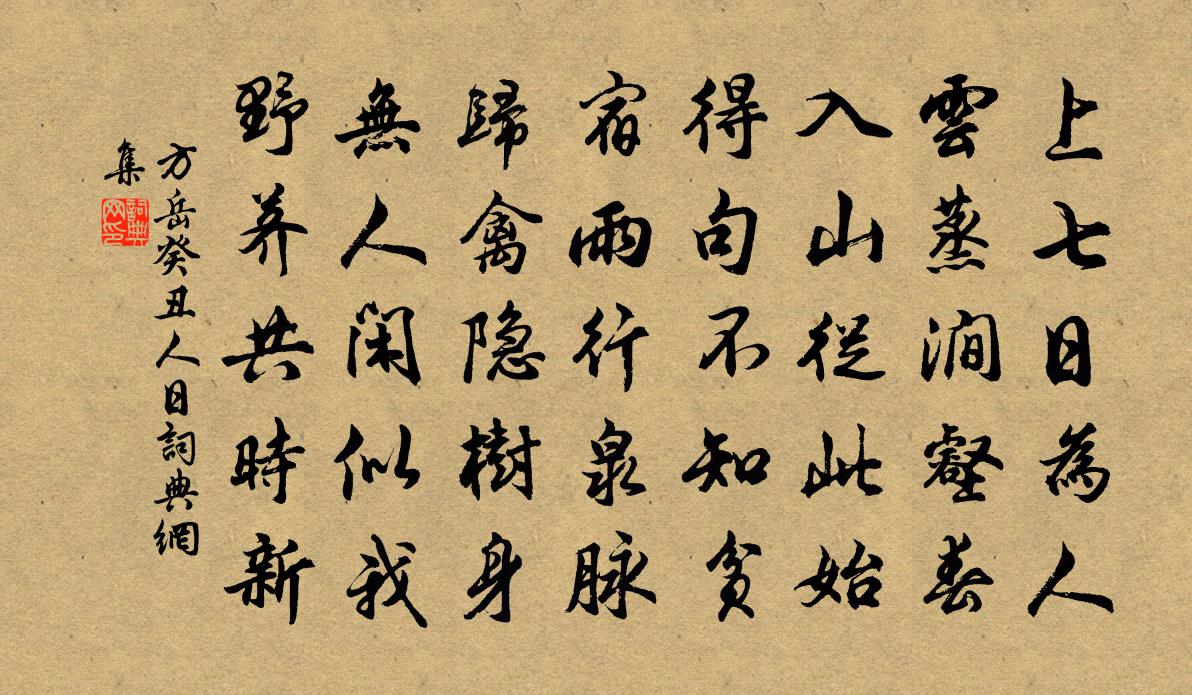 上七日為人
雲蒸澗壑春
入山從此始
得句不知貧
宿雨行泉脉
歸禽隐樹身
無人閑似我
野荠共時新
方岳癸丑人日詞典網
集
詞典
网印